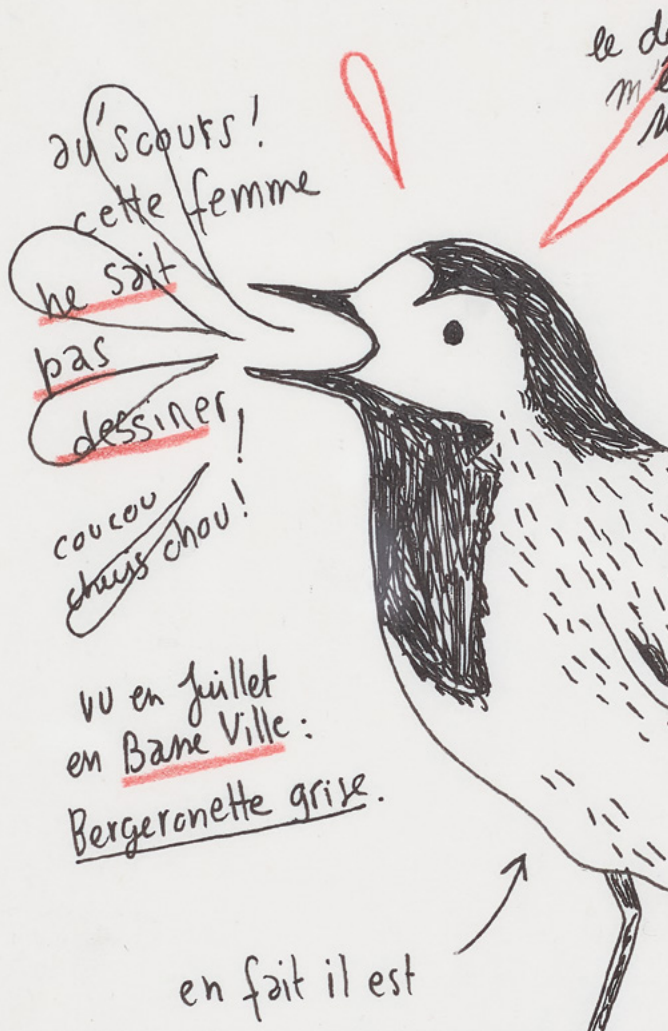 au s'cours!
cette femme
ne sait
pas
dessiner!
coucou
chuis chou!
le
m'
vu en Juillet
en Basse Ville :
Bergeronette grise.
en fait il est